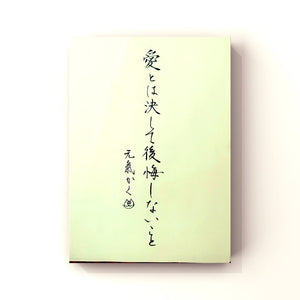 愛とは決して後悔しないこと
元氣かく